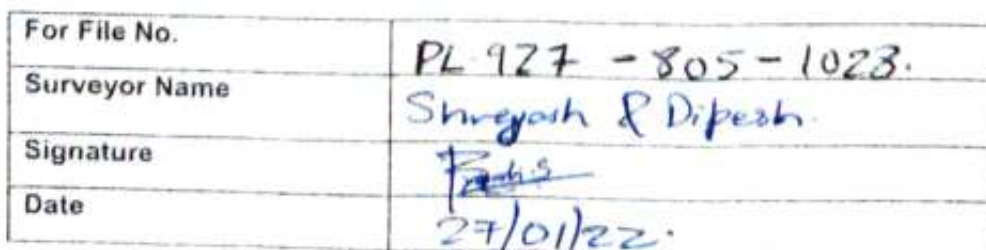 For File No. PL 927 - 805 - 1023.
Surveyor Name Shreyash & Dipesh.
Signature
Date 27/01/22.